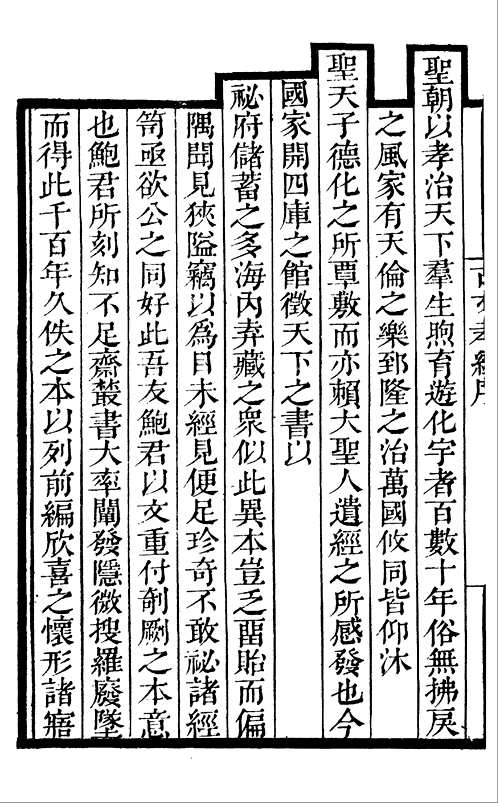 古文孝經序
聖朝以孝治天下羣生煦育遊化宇者百數十年俗無拂戾
之風家有天倫之樂郅隆之治萬國攸同皆仰沐
聖天子德化之所覃敷而亦賴大聖人遺經之所感發也今
國家開四庫之館徵天下之書以
祕府儲蓄之多海內弆藏之衆似此異本豈乏畱貽而偏
隅聞見狹隘竊以為目未經見便足珍奇不敢祕諸經
笥亟欲公之同好此吾友鮑君以文重付剞劂之本意
也鮑君所刻知不足齋叢書大率闡發隱微搜羅廢墜
而得此千百年久佚之本以列前編欣喜之懷形諸寤